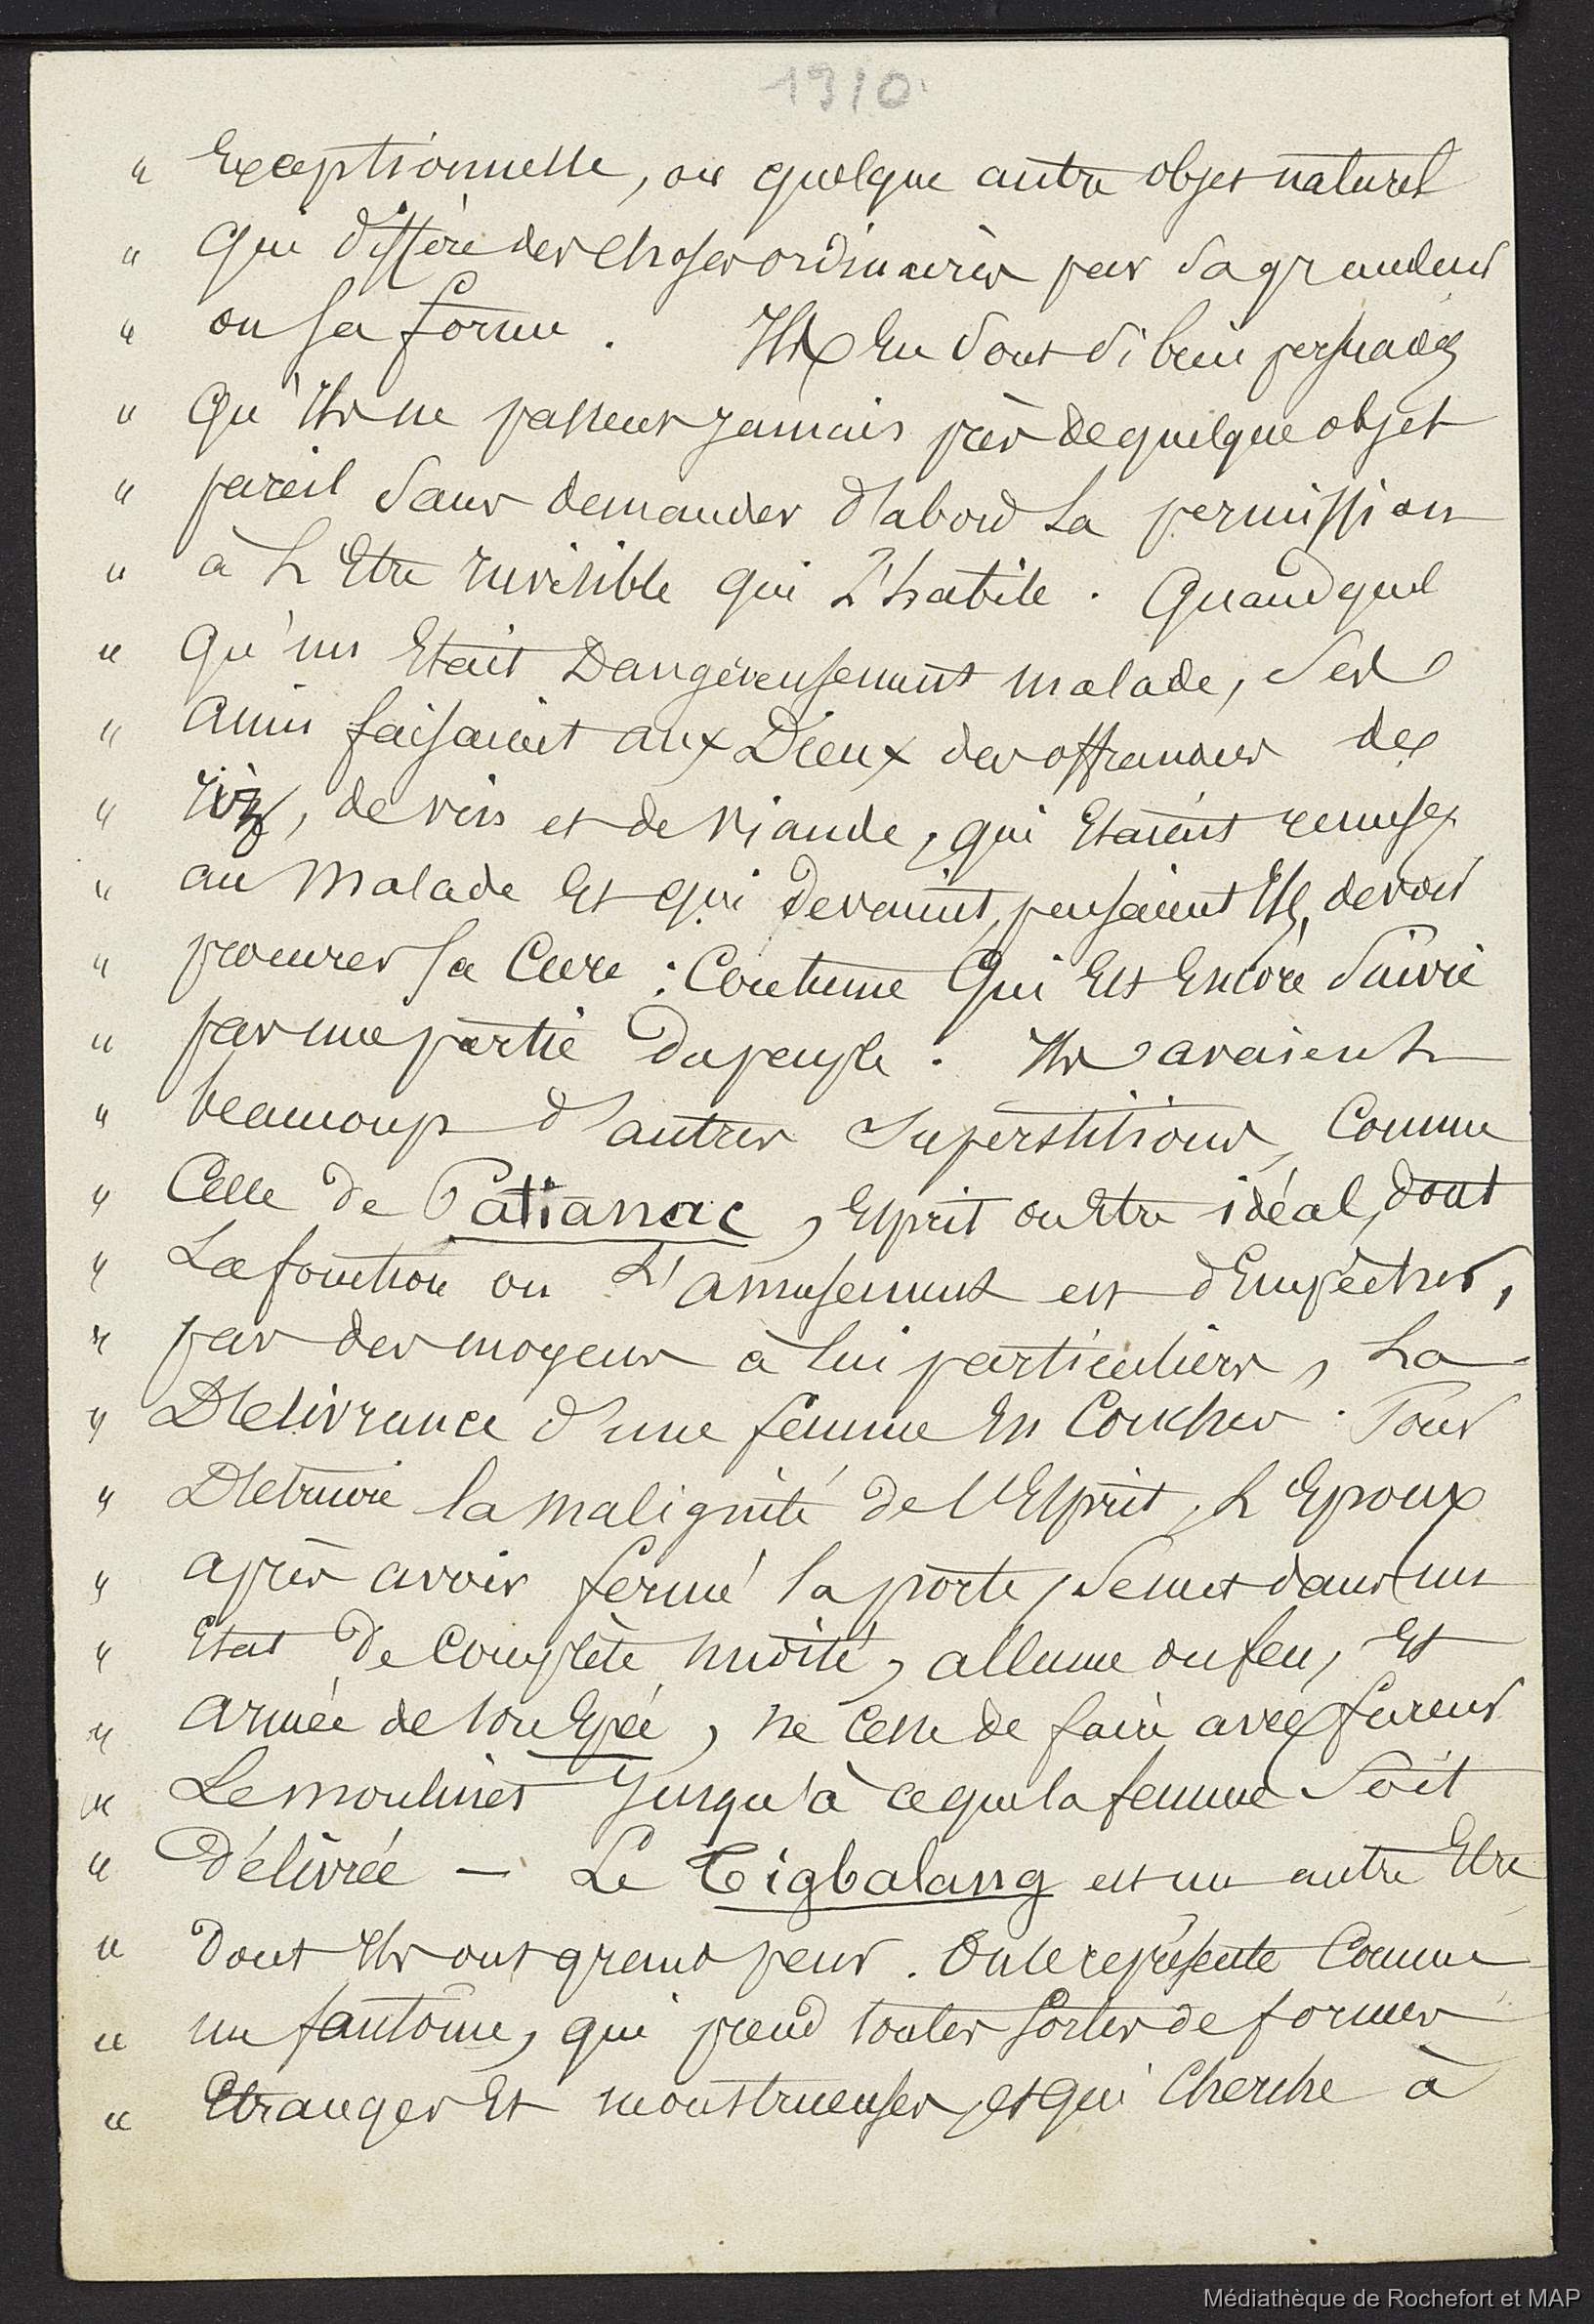 1910
" Exceptionnelle, ou quelque autre objet naturel
" Qui diffère des choses ordinaires par sa grandeur
" ou sa forme. Ils En sont si bien persuadés
" Qu'Ils ne passent jamais près de quelque objet
" pareil sans demander d'abord La permission
" à L'Etre invisible qui L'habite. Quand quel
" Qu'un Etait Dangereusement malade, ses
" Amis faisaient aux Dieux des offrandes de
" riz, de vin et de viande, qui Etaient remises
" au Malade Et qui devaient, pensaient Ils, devoir
" procurer sa Cure : Coutume Qui Est Encore Suivie
" par une partie du peuple. Ils avaient
" beaucoup d'autres Superstitions, Comme
" Celle de Patianac, Esprit ou Etre idéal, dont
" La fonction ou L'amusement est d'Empêcher,
" par des moyens à lui particuliers, La
" Délivrance d'une femme En Couches. Pour
" Détruire la malignité de l'Esprit, L'Epoux
" après avoir fermé la porte, se met dans un
" Etat de Complète nudité, allume du feu, Et
" armée de son Epée, ne cesse de faire avec fureur
" Le moulinet jusqu'à ce que la femme Soit
" Délivrée — Le Tigbalang est un autre Etre
" Dont Ils ont grand peur. On le représente Comme
" un fantôme, qui prend toutes sortes de formes
" Etranges Et monstrueuses, et qui Cherche à
Médiathèque de Rochefort et MAP